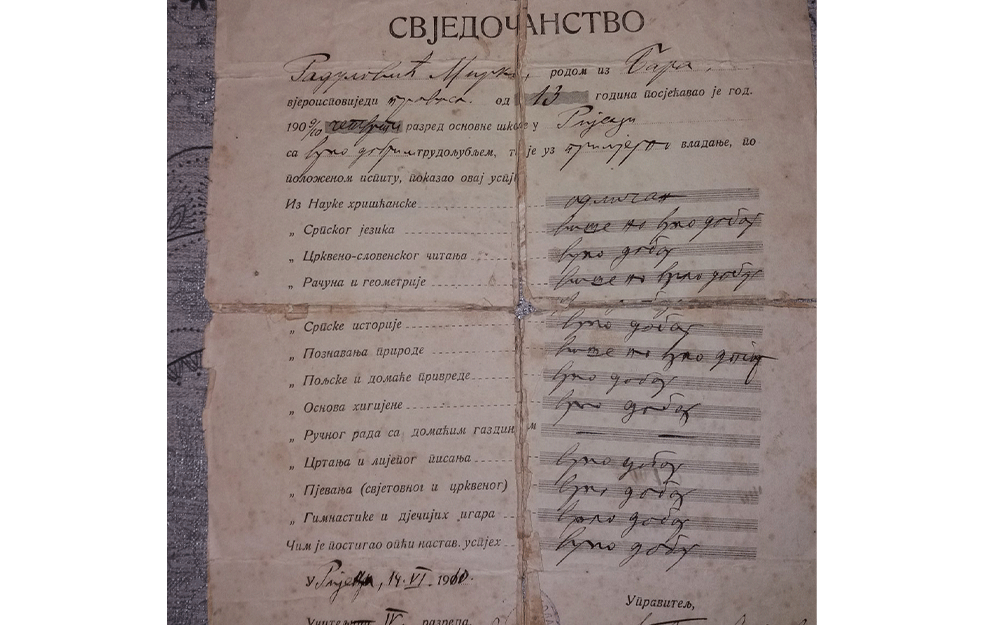 СВЈЕДОЧАНСТВО
Радуловић Мирко, родом из Бара,
вјероисповиједи правосл. од 13 година посјећавао је год.
190 9/10 четврти разред основне школе у Ријеци
са врло добрим трудољубљем, те је уз примјерно владање, по
положеном испиту, показао овај успјех
Из Науке хришћанске одличан
„ Српског језика више но врло добар
„ Црквено-словенског читања врло добар
„ Рачуна и геометрије више но врло добар
„ Српске историје врло добар
„ Познавања природе више но врло добар
„ Пољске и домаће привреде врло добар
„ Основа хигијене врло добар
„ Ручног рада са домаћим газдин м —
„ Цртања и лијепог писања врло добар
„ Пјевања (свјетовног и црквеног) врло добар
„ Гимнастике и дјечијих игара врло добар
Чим је постигао опћи настав. успјех врло добар
У Ријеци, 14. VI. 1910.
Управитељ,
IV. разреда